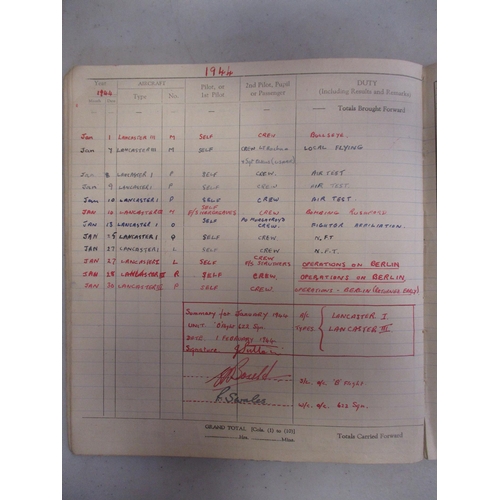 1944
Year AIRCRAFT Pilot, or 2nd Pilot, Pupil DUTY
1944 1st Pilot or Passenger (Including Results and Remarks)
Month Date Type No.
— — — — — Totals Brought Forward
JAN 1 LANCASTER III M SELF CREW BULLSEYE.
JAN 7 LANCASTER III M SELF CREW LOCAL FLYING
8 LANCASTER I P SELF CREW. AIR TEST
JAN 9 LANCASTER I P SELF CREW AIR TEST.
JAN 10 LANCASTER I P SELF CREW AIR TEST
SELF
JAN 14 LANCASTER III M CREW BOMBING
JAN LANCASTER I O SELF CREW. FIGHTER AFFILIATION.
JAN 25 LANCASTER I Q SELF CREW N.F.T
JAN 27 LANCASTER I L SELF CREW. N.F.T.
JAN 27 LANCASTER L SELF CREW OPERATIONS ON BERLIN
JAN 28 LANCASTER R SELF CREW. OPERATIONS ON BERLIN
JAN 30 LANCASTER P SELF CREW OPERATIONS - BERLIN
Summary for JANUARY 1944 A/C LANCASTER I.
UNIT. B Flight 622 Sqn. TYPES LANCASTER III
DATE 1 FEBRUARY 1944
Signature
S/L. O/C. 'B' Flight.
W/C. O/C. 622 Sqn.
GRAND TOTAL [Cols. (1) to (10)]
Hrs. Mins. Totals Carried Forward